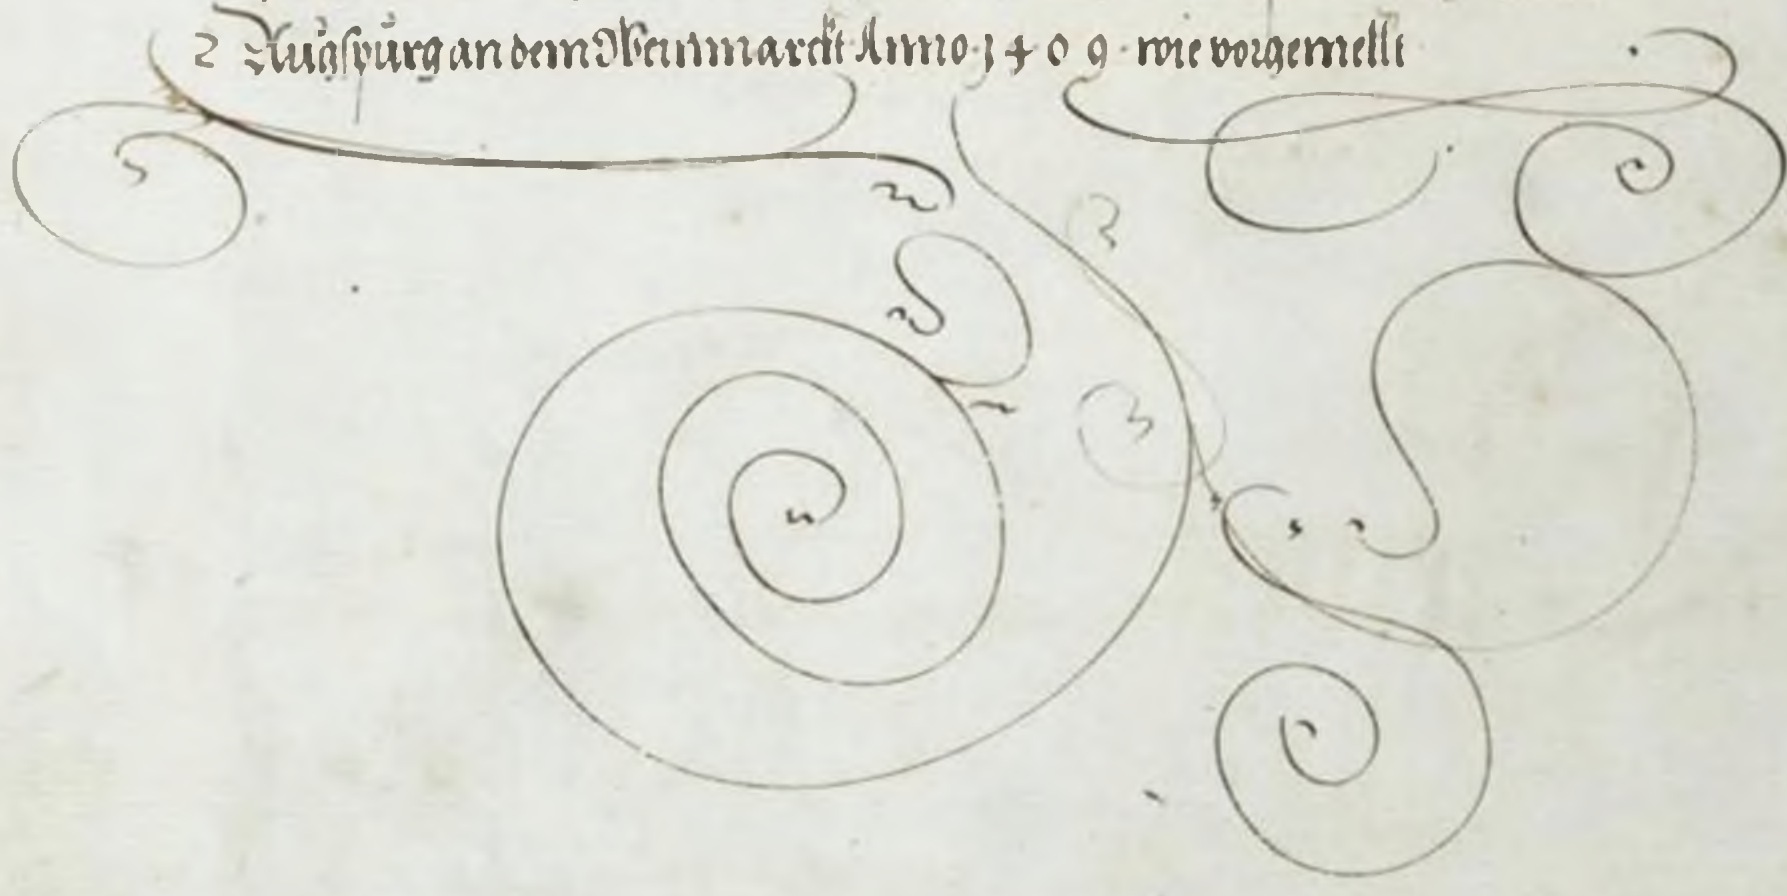 2 Augspurg an dem Obenmarckt Anno · 1409 · wie vorgemellt